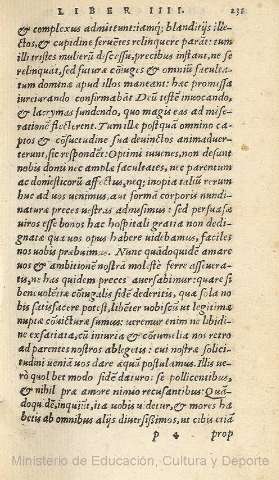 LIBER IIII. 236
& complexus admittunt: iamq; blanditijs ille-
ctos, & cupidine feruētes relinquere parāt: tum
illi tristes mulierū discessu, precibus instant, ne se
relinquāt, sed futuræ cōiuges & omniū facultá-
tum domina apud illos maneant: hac promissa
iureiurando confirmabāt Deū testē inuocando,
& lacrymas fundendo, quo magis eas ad mise-
rationē flecterent. Tum illæ postquā omnino ca-
ptos & cōsuetudine sua deuinctos animaduer-
terunt, sic respondēt: Optimi iuuenes, non desunt
nobis domi nec amplæ facultates, nec parentum
ac domesticorū affectus, neq; inopia taliū rerum
huc ad uos uenimus, aut formā corporis nundi-
naturæ preces uestras admisimus: sed persuasæ
uiros esse bonos hac hospitali gratia non dedi-
gnatæ qua uos opus habere uidebamus, faciles
nos uobis præbuimus. Nunc quādoquidē amare
uos & ambitionē nostrā molestè ferre asseuera-
tis, ne has quidem preces auersabimur: quare si
beneuolētiæ cōiugalis fidē dederitis, quæ sola no
bis satisfacere potest, libēter uobiscū ut legitimæ
nuptæ cōuicturæ sumus: ueremur enim ne libidi-
ne exsatiata, cū iniuria & cōtumelia nos retro
ad parentes nostros ablegetis: cui nostræ solici-
tudini ueniā uos dare æquū postulamus. Illis ue-
rò quolibet modo fidē daturos se pollicentibus,
& nihil præ amore nimio recusantibus: Quā-
doquidē, inquiūt, ita uobis uidetur, & mores ha
betis ab omnibus alijs diuersissimos, ut cibis etiā
p 4 prop
Ministerio de Educación, Cultura y Deporte